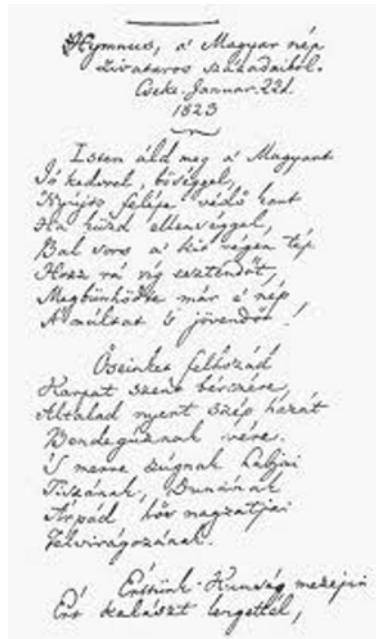 Hymnus, a' Magyar nép
zivataros századaiból.
Cseke. Januar. 22d.
1823
Isten áld meg a' Magyart
Jó kedvvel, bőséggel,
Nyújts feléje védő kart
Ha küzd ellenséggel,
Bal sors a' kit régen tép
Hozz rá víg esztendőt,
Megbűnhődte már e' nép
A' múltat 's jövendőt!
Őseinket felhozád
Kárpát szent bérczére
Általad nyert szép hazát
Bendegúznak vére.
'S merre zúgnak habjai
Tiszának, Dunának
Árpád hős magzatjai
Felvirágozának.
Értünk Kunság mezejin
Ért kalászt lengettél,